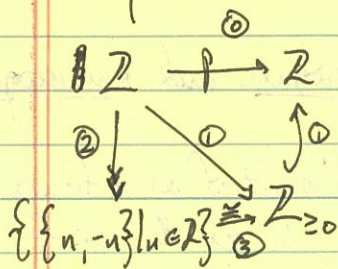 ⓪
ℤ f ℤ
② ① ①
{{n, -n} | n ∈ ℤ} ≅ ℤ≥0
③